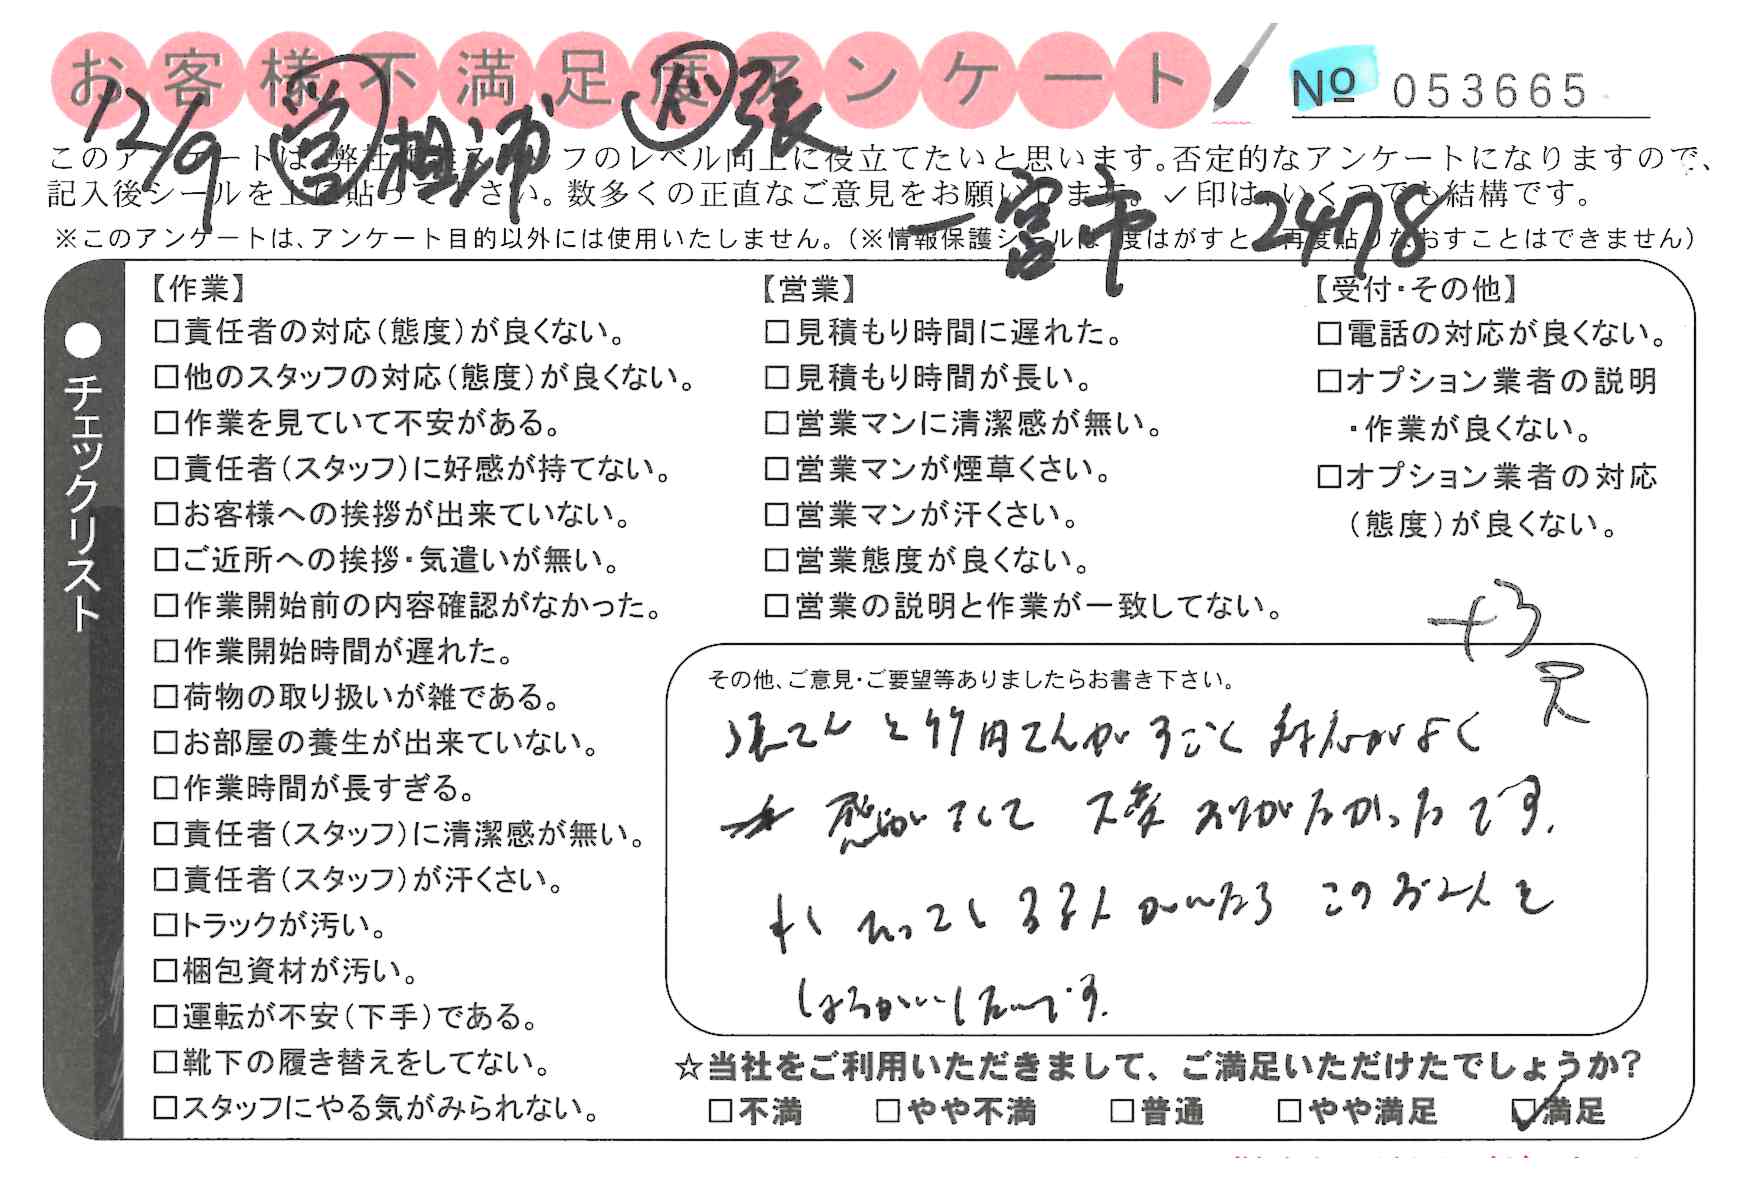 お客様不満足度アンケート
№ 053665
12/9 営 相浦 ガ 張
このアンケートは、弊社作業スタッフのレベル向上に役立てたいと思います。否定的なアンケートになりますので、
記入後シールを上に貼って下さい。数多くの正直なご意見をお願いします。✓印は、いくつでも結構です。
一宮市 2478
※このアンケートは、アンケート目的以外には使用いたしません。(※情報保護シールは1度はがすと、再度貼りなおすことはできません)
●チェックリスト
【作業】
□責任者の対応(態度)が良くない。
□他のスタッフの対応(態度)が良くない。
□作業を見ていて不安がある。
□責任者(スタッフ)に好感が持てない。
□お客様への挨拶が出来ていない。
□ご近所への挨拶・気遣いが無い。
□作業開始前の内容確認がなかった。
□作業開始時間が遅れた。
□荷物の取り扱いが雑である。
□お部屋の養生が出来ていない。
□作業時間が長すぎる。
□責任者(スタッフ)に清潔感が無い。
□責任者(スタッフ)が汗くさい。
□トラックが汚い。
□梱包資材が汚い。
□運転が不安(下手)である。
□靴下の履き替えをしてない。
□スタッフにやる気がみられない。
【営業】
□見積もり時間に遅れた。
□見積もり時間が長い。
□営業マンに清潔感が無い。
□営業マンが煙草くさい。
□営業マンが汗くさい。
□営業態度が良くない。
□営業の説明と作業が一致してない。
【受付・その他】
□電話の対応が良くない。
□オプション業者の説明
・作業が良くない。
□オプション業者の対応
(態度)が良くない。
その他、ご意見・ご要望等ありましたらお書き下さい。
張さんと竹内さんがすごく対応がよく
大変ありがたかったです。
しょうかいしたいです。
☆当社をご利用いただきまして、ご満足いただけたでしょうか?
□不満 □やや不満 □普通 □やや満足 ☑満足